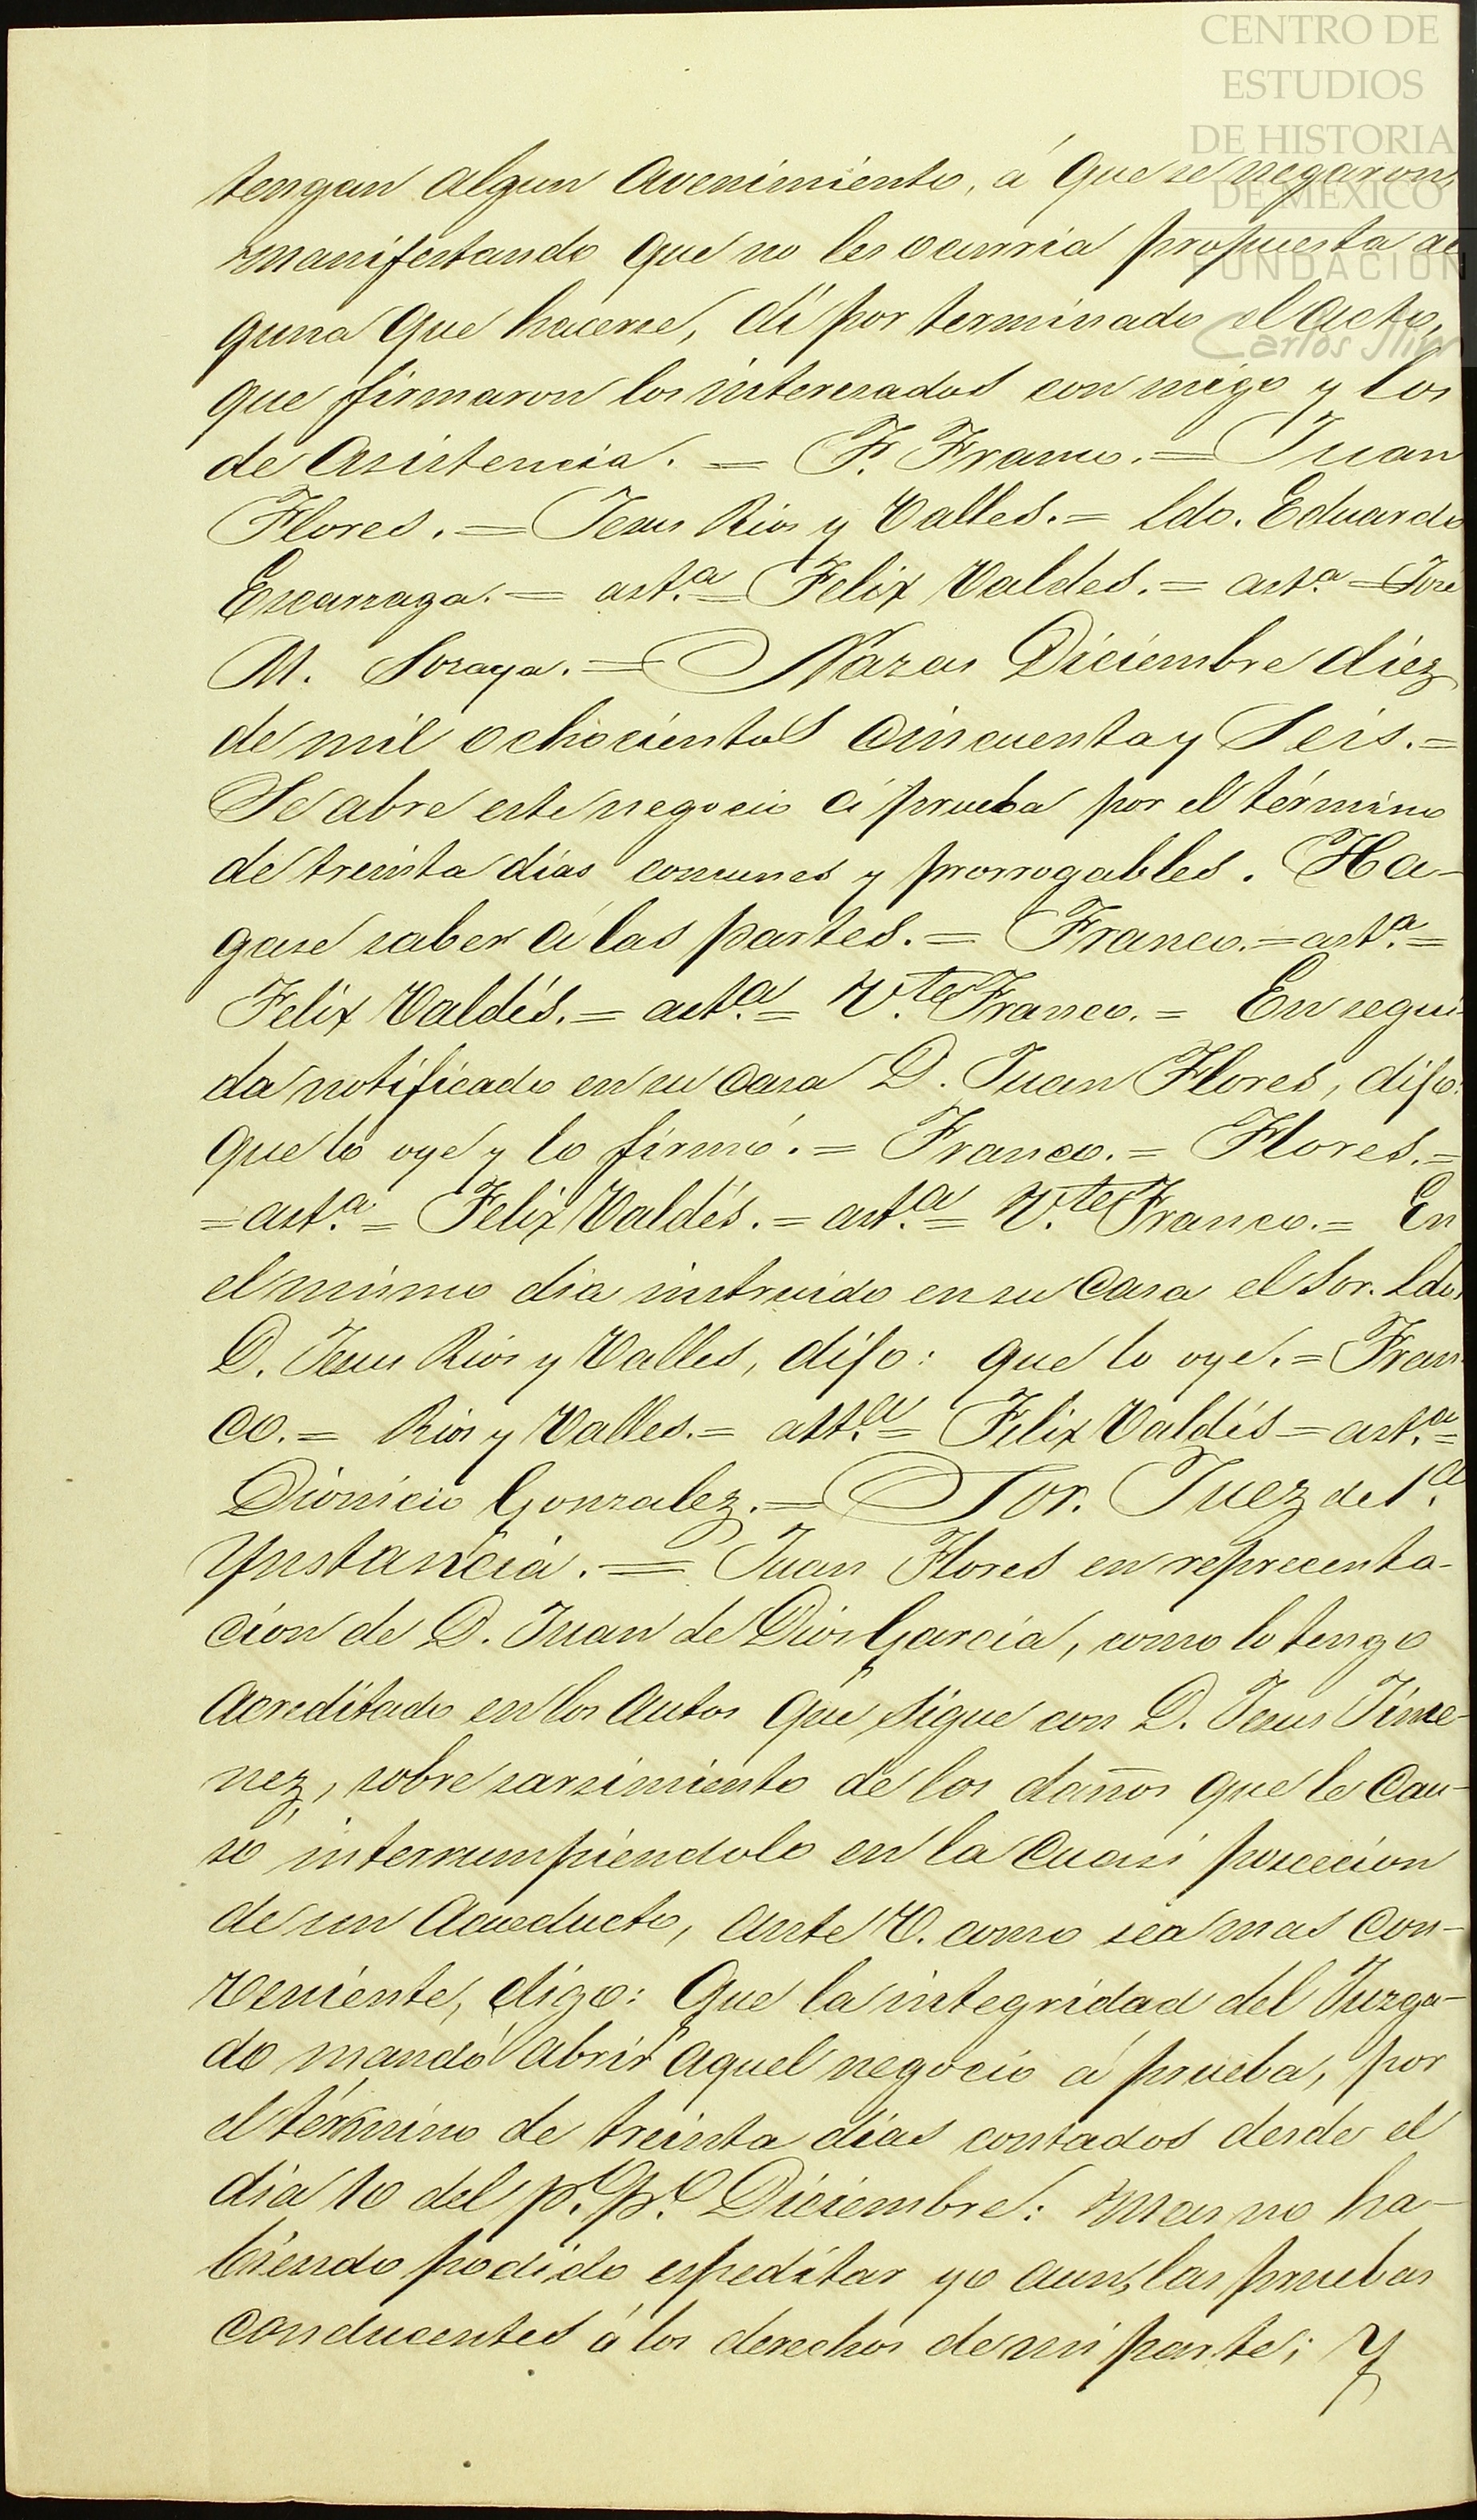 CENTRO DE
ESTUDIOS
DE HISTORIA
DE MÉXICO
FUNDACIÓN
Carlos Slim
tengan algun avenimiento, á que se negaron,
manifestando que no les ocurria propuesta al
guna que hacerse, dí por terminado el acto,
que firmaron los interesados con migo y los
de asistencia. = F. Franco. = Juan
Flores. = Jesus Rios y Valles. = Ldo. Eduardo
Escarzaga. = ast.ª = Felix Valdes. = ast.ª = José
M. Soraya. = Nazas Diciembre diez
de mil ochocientos cincuenta y Seis. =
Se abre este negocio á prueba por el término
de treinta dias comunes y prorrogables. Ha-
gase saber á las partes. = Franco. = ast.ª =
Felix Valdés. = ast.ª = V.te Franco. = En segui
da notificado en su casa D. Juan Flores, dijo:
que lo oye y lo firmó. = Franco. = Flores. =
= ast.ª = Felix Valdés. = ast.ª = V.te Franco. = En
el mismo dia instruido en su casa el Sor. Ldo.
D. Jesus Rios y Valles, dijo: que lo oye. = Fran
co. = Rios y Valles. = ast.ª = Felix Valdés = ast.ª =
Dionicio Gonzalez. = Sor. Juez de 1.ª
Ynstancia. = Juan Flores en reprecenta-
cion de D. Juan de Dios Garcia, como lo tengo
acreditado en los autos que sigue con D. Jesus Jime-
nez, sobre sarsimiento de los daños que le cau-
só interrumpiendolo en la cuasi poscecion
de un acueducto, ante V. como sea mas con-
veniente, digo: Que la integridad del Juzga-
do mandó abrir aquel negocio á prueba, por
el término de treinta dias contados desde el
dia 10 del p.º p.º Diciembre: mas no ha-
biendo podido espeditar yo aun, las pruebas
conducentes á los derechos de mi parte; y